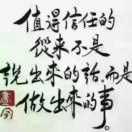 值得信任的
从来不是
說出来的話.而是
做出来的事。